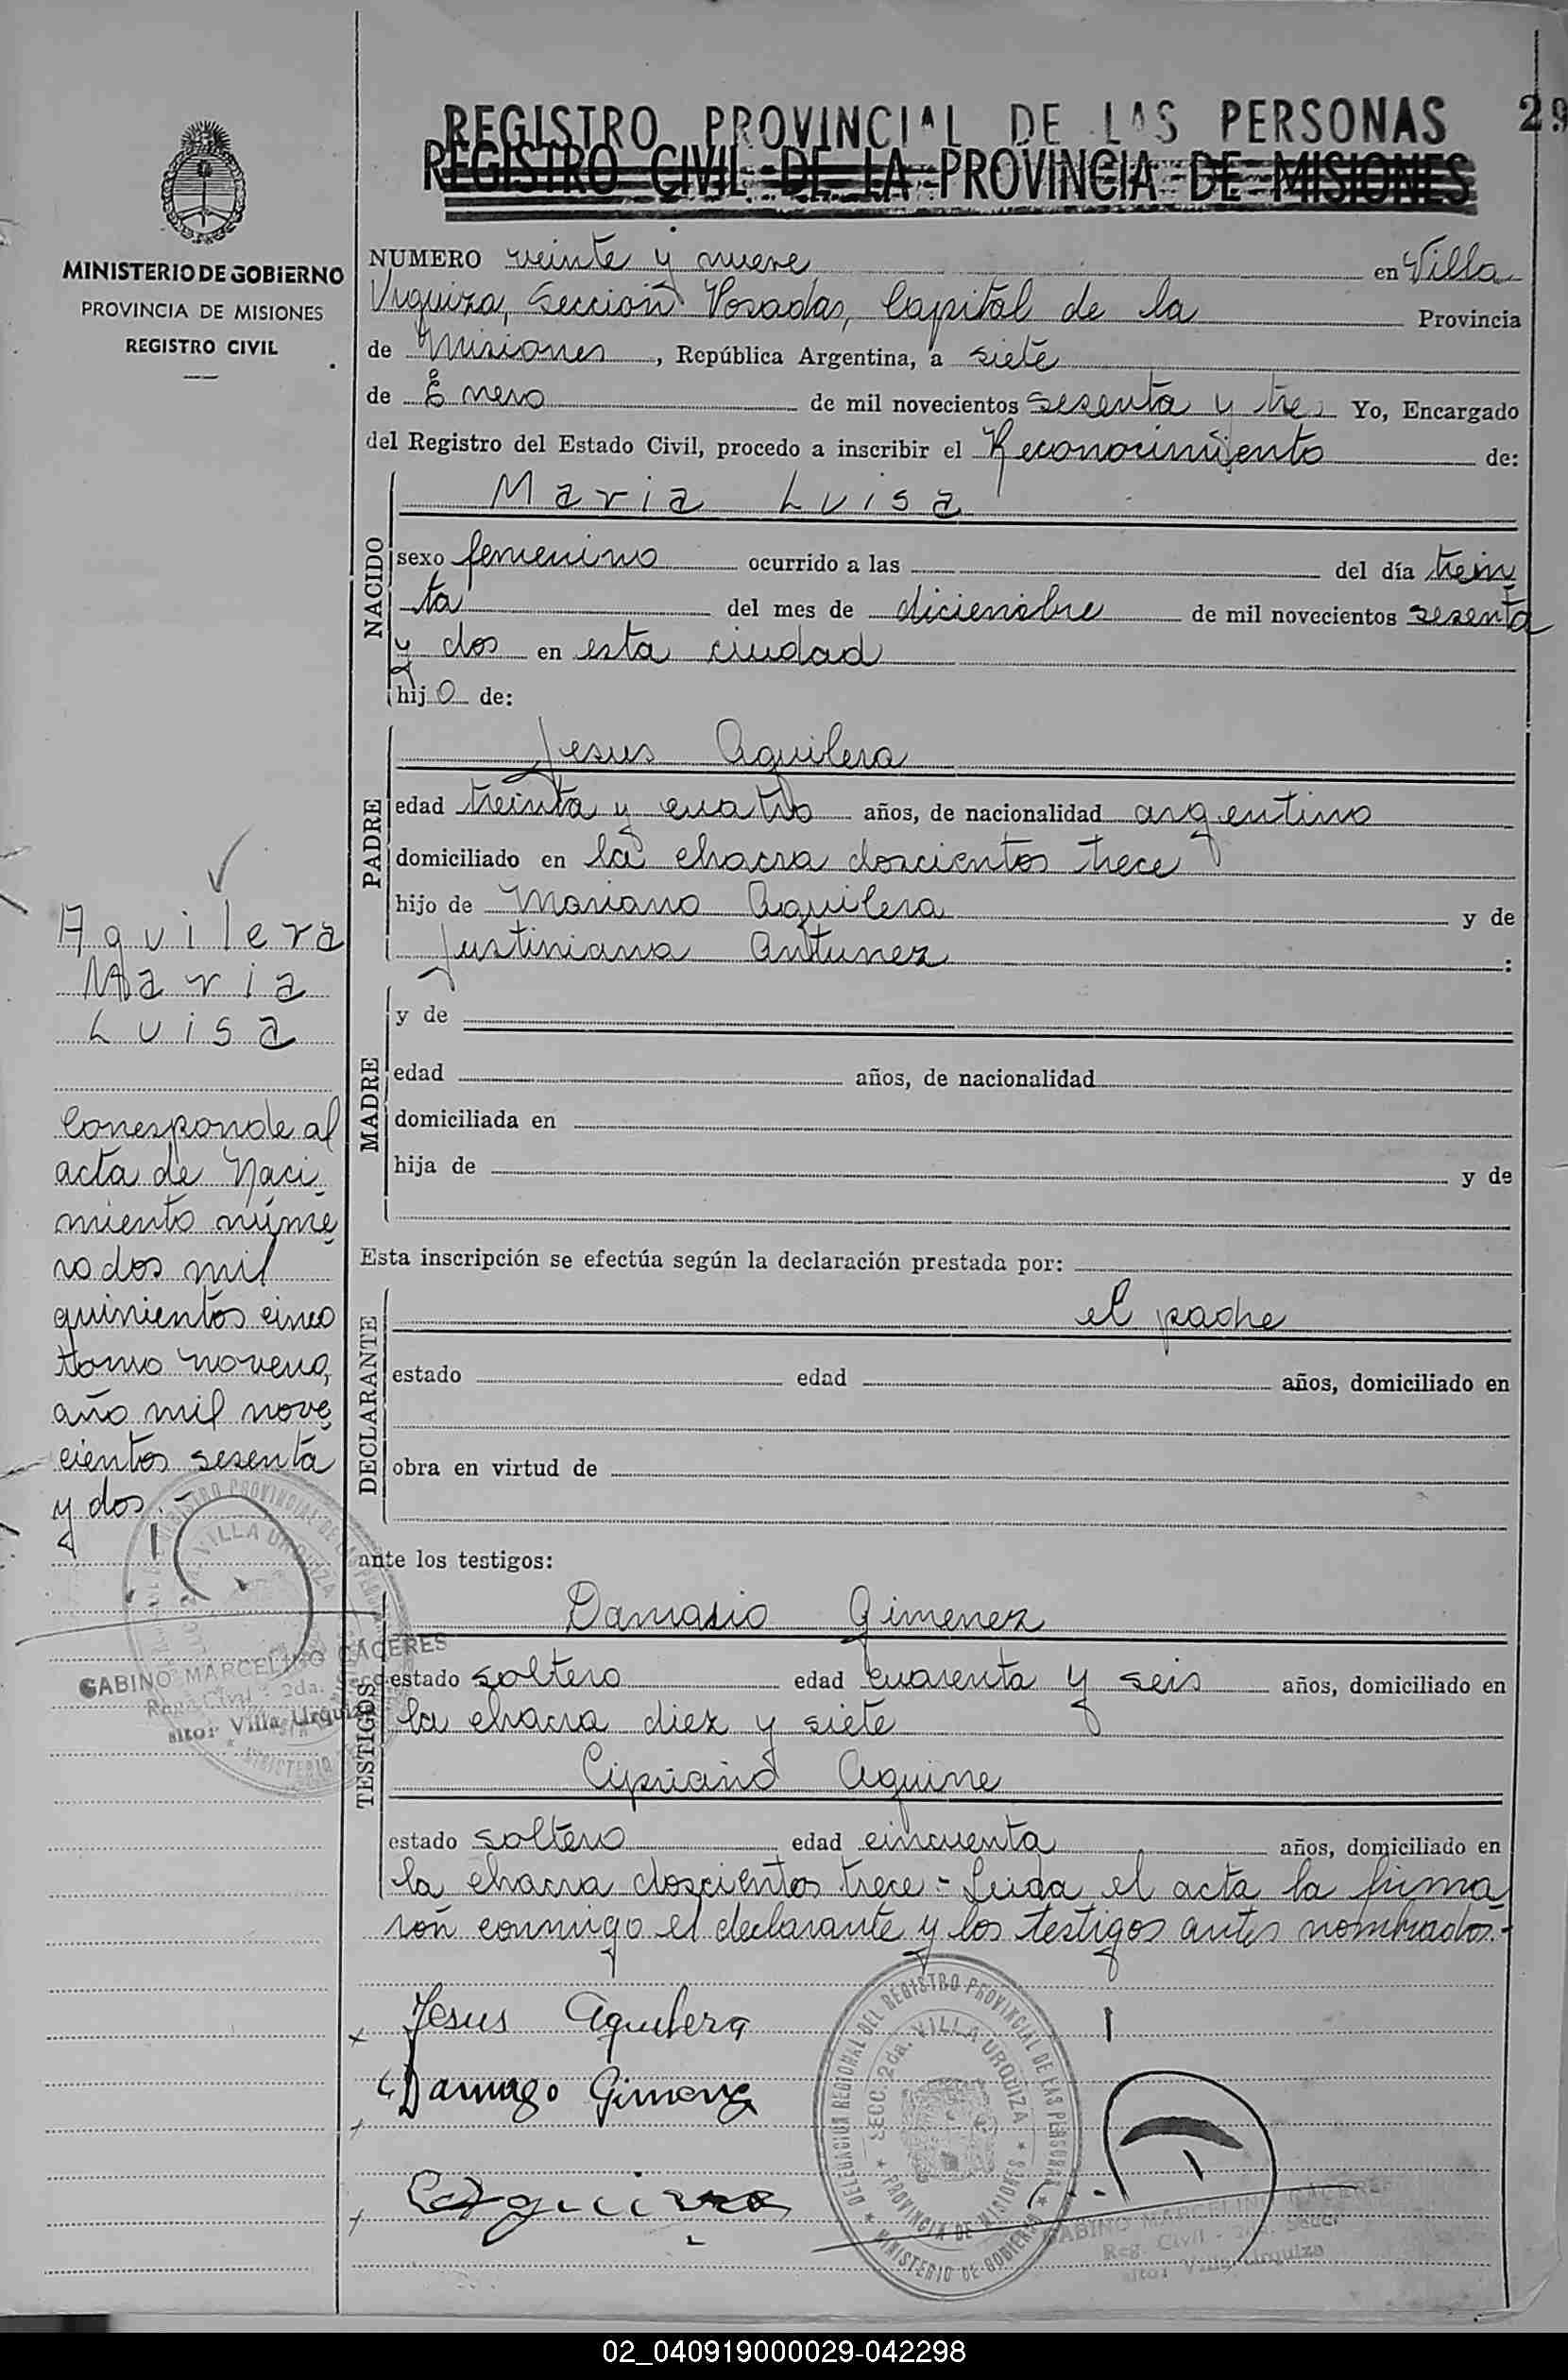 REGISTRO PROVINCIAL DE LAS PERSONAS 29
REGISTRO CIVIL DE LA PROVINCIA DE MISIONES
MINISTERIO DE GOBIERNO
PROVINCIA DE MISIONES
REGISTRO CIVIL
NUMERO veinte y nueve en Villa
Urquiza, Sección Posadas, Capital de la Provincia
de Misiones, República Argentina, a siete
de Enero de mil novecientos sesenta y tres Yo, Encargado
del Registro del Estado Civil, procedo a inscribir el Reconocimiento de:
NACIDO
Maria Luisa
sexo femenino ocurrido a las del día trein
ta del mes de diciembre de mil novecientos sesenta
y dos en esta ciudad
hijo de:
PADRE
Jesus Aguilera
edad treinta y cuatro años, de nacionalidad argentino
domiciliado en la chacra doscientos trece
hijo de Mariano Aguilera y de
Justiniana Antunez :
MADRE
y de
edad años, de nacionalidad
domiciliada en
hija de y de
Esta inscripción se efectúa según la declaración prestada por:
DECLARANTE
el padre
estado edad años, domiciliado en
obra en virtud de
ante los testigos:
TESTIGOS
Damasio Gimenez
estado soltero edad cuarenta y seis años, domiciliado en
la chacra diez y siete
Cipriano Aguirre
estado soltero edad cincuenta años, domiciliado en
la chacra doscientos trece - Leida el acta la firma
ron conmigo el declarante y los testigos antes nombrados.-
Jesus Aguilera
Gimenez
Aguilera
Maria
Luisa
Corresponde al
acta de Naci-
miento núme-
ro dos mil
quinientos cinco
tomo noveno,
año mil nove-
cientos sesenta
y dos.-
GABINO MARCELINO CACERES
Reg. Civil - 2da. Secc.
Villa Urquiza
DELEGACION REGIONAL DEL REGISTRO PROVINCIAL DE LAS PERSONAS
SECC. 2da. VILLA URQUIZA
PROVINCIA DE MISIONES
MINISTERIO DE GOBIERNO
GABINO MARCELINO CACERES
Reg. Civil - 2da. Secc.
Villa Urquiza
02_040919000029-042298